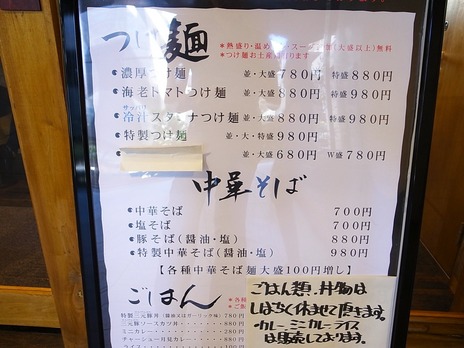 つけ麺
＊熱盛り・温め
＊つけ麺お土産
濃厚つけ麺 並・大盛780円 特盛880円
海老トマトつけ麺 並・大盛880円 特盛980円
サッパリ
冷汁スタミナつけ麺 並・大盛880円 特盛980円
特製つけ麺 並・大・特盛980円
並・大盛680円 W盛780円
中華そば
中華そば 700円
塩そば 700円
豚そば(醤油・塩) 880円
特製中華そば(醤油・塩) 980円
【各種中華そば麺大盛100円増し】
ごはん
特製三元豚丼(醤油又はガーリック味) 780円
三元豚ソースカツ丼 580円
ミニカレー 280円
チャーシュー月見カレー 580円
ライス 100円
ごはん類、丼物は
しばらく休ませて頂きます。
カレー、ミニカレー、ライス
は販売しております。